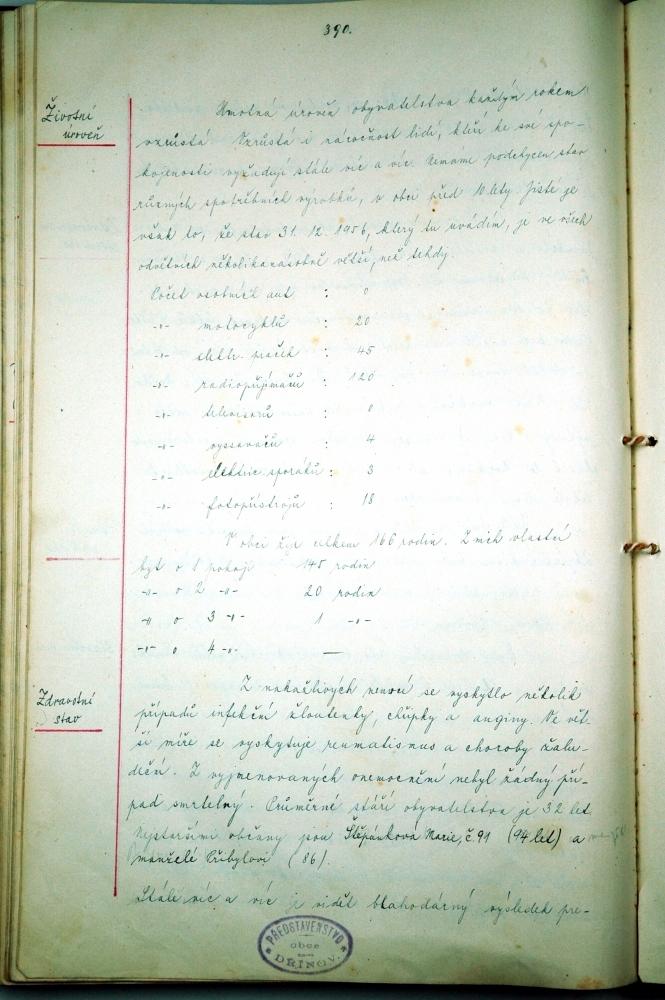 390.
Životní
úroveň
Hmotná úroveň obyvatelstva každým rokem
vzrůstá. Vzrůstá i náročnost lidí, kteří ke své spo-
kojenosti vyžadují stále víc a víc. Nemáme podchycen stav
různých spotřebních výrobků, v obci před 10 lety. Jisté je
však to, že stav 31. 12. 1956, který tu uvádím, je ve všech
odvětvích několikanásobně větší, než tehdy.
Počet osobních aut : 0
-"- motocyklů : 20
-"- elektr. praček : 45
-"- radiopřijímačů : 120
-"- televisorů : 0
-"- vyssavačů : 4
-"- elektric. sporáků : 3
-"- fotopřístrojů : 18
V obci žije celkem 166 rodin. Z nich vlastní
byt o 1 pokoji 145 rodin
-"- o 2 -"- 20 rodin
-"- o 3 -"- 1 -"-
-"- o 4 -"- —
Zdravotní
stav
Z nakažlivých nemocí se vyskytlo několik
případů infekční žloutenky, chřipky a anginy. Ve vět-
ší míře se vyskytuje reumatismus a choroby žalu-
deční. Z vyjmenovaných onemocnění nebyl žádný pří-
pad smrtelný. Průměrné stáří obyvatelstva je 32 let.
Nejstaršími občany jsou Štěpánková Marie, č. 91 (94 let) a
manželé Přibylovi (86).
Stále víc a víc je vidět blahodárný výsledek pre-
PŘEDSTAVENSTVO
obce
DŘÍNOV.